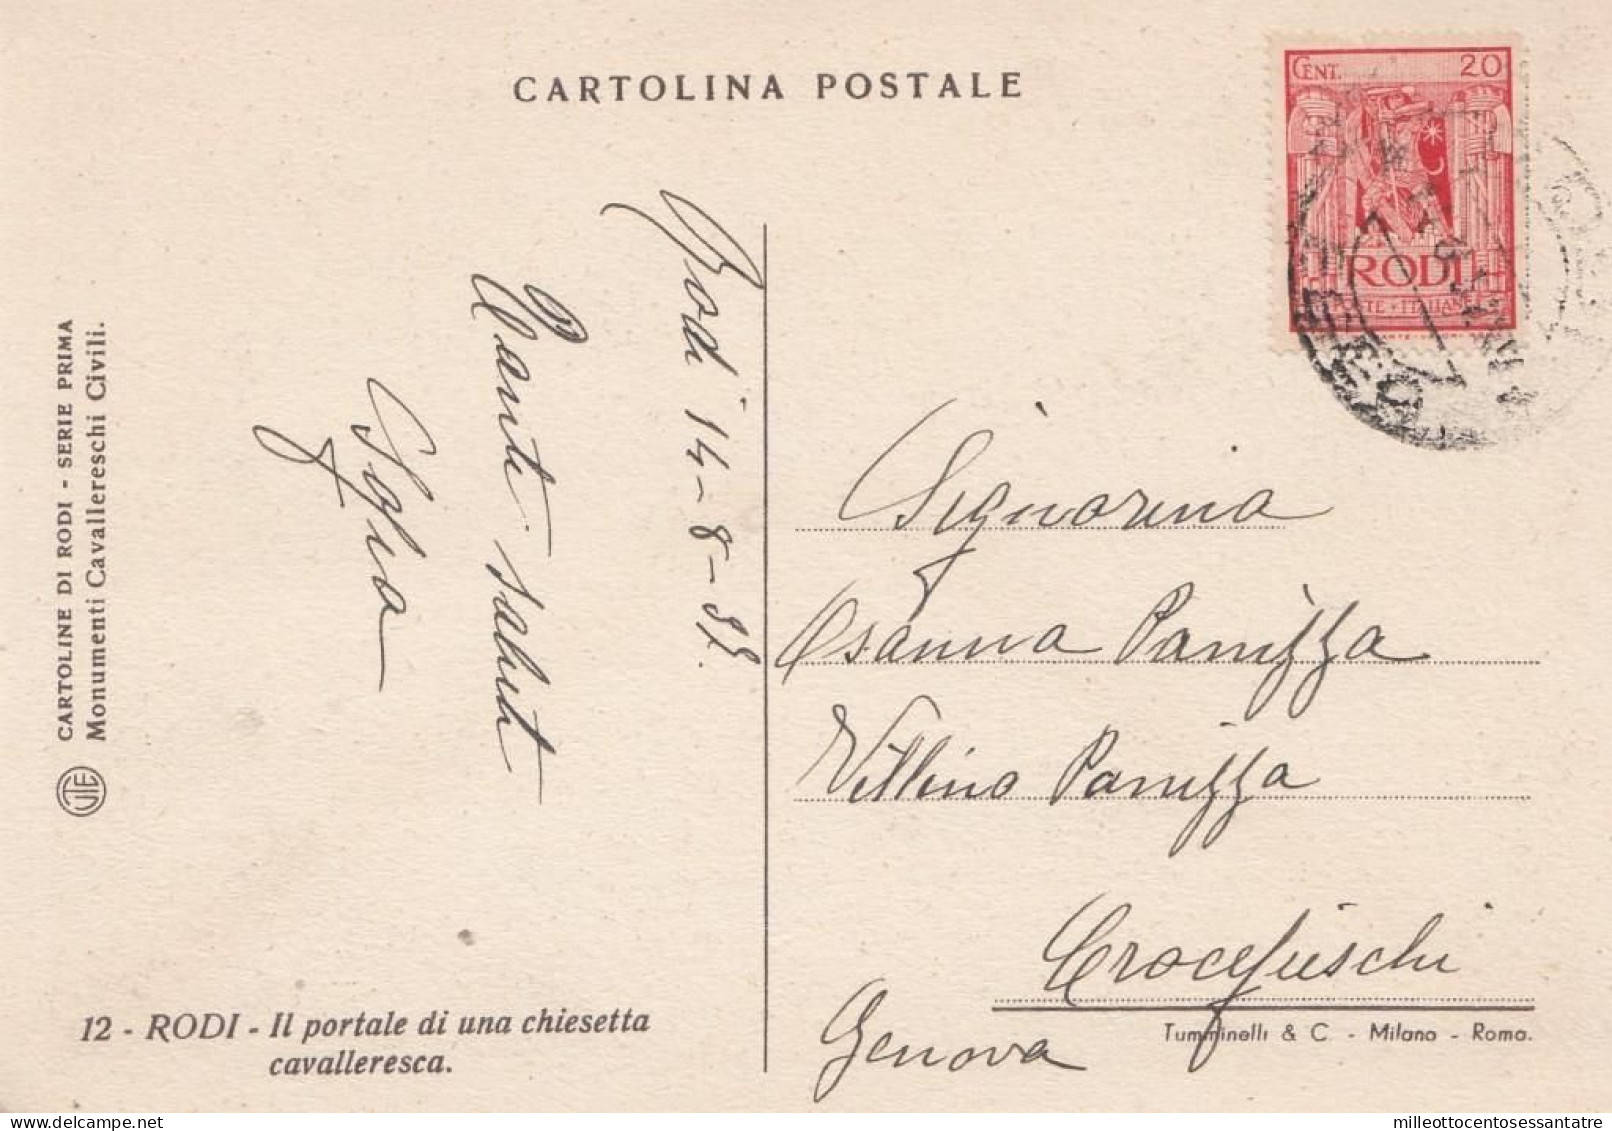 CARTOLINA POSTALE
CENT. 20
RODI
Rodi 14-8-35
Tante saluti
Sofia
CARTOLINE DI RODI - SERIE PRIMA
Monumenti Cavallereschi Civili.
UTE
Signorina
Osanna Panizza
Villino Panizza
Crocefieschi
Genova
12 - RODI - Il portale di una chiesetta
cavalleresca.
Tumminelli & C. - Milano - Roma.
milleottocentosessantatre